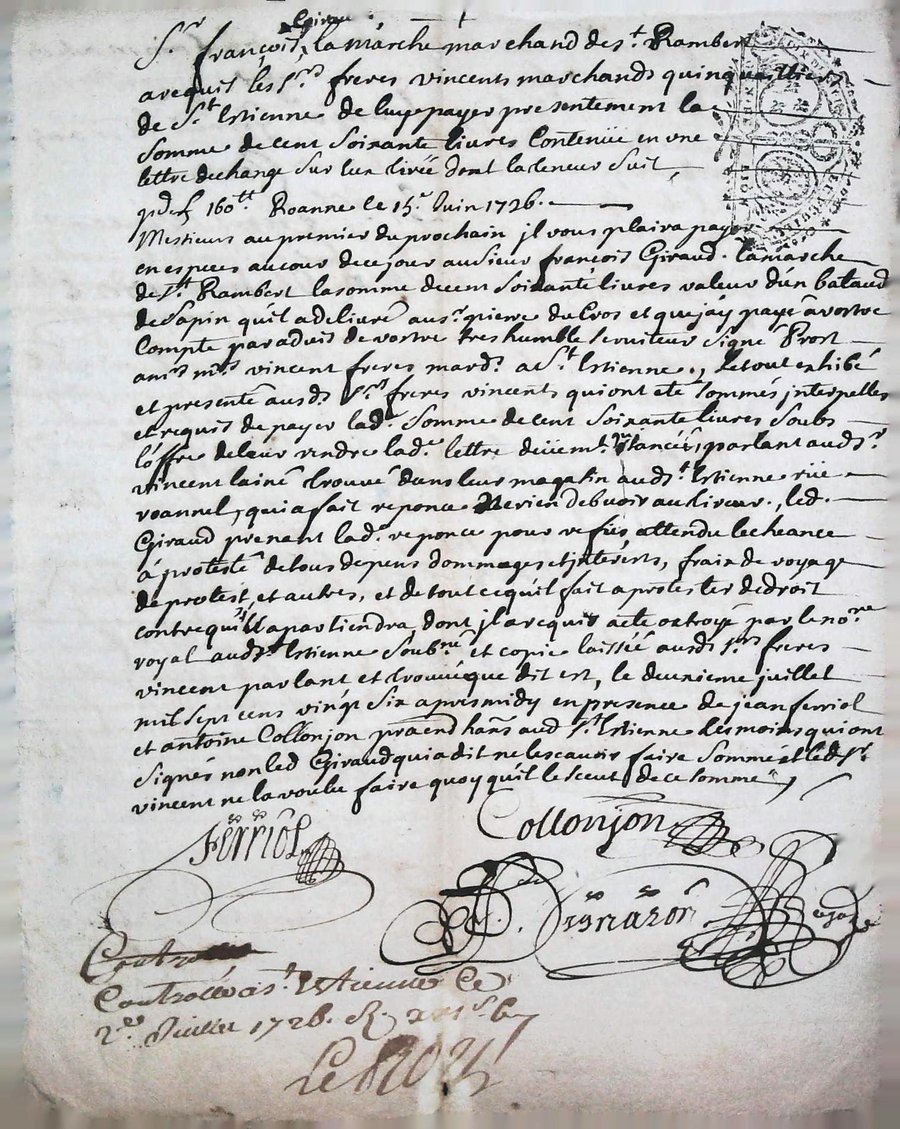 Giraud
Sr françois, la marche marchand de st. Rambert
a requis les srs freres vincents marchands quinqualliers
de St. Estienne de luy payer presentement la
Somme de cent soixante livres Contenüe en une
lettre dechange sur eux tirée dont la teneur suit
160 tt Roanne le 15e Juin 1726.
Messieurs au premier du prochain jl vous plaira payer
en especes au cour de ce jour au sieur françois Giraud. lamarche
de st. Rambert la somme de cent soixante livres valeur d'un bataud
de sapin quil a delivré au sr. pierre du Cros et que jay payé a vostre
Compte par advis de vostre tres humble serviteur signé Prost
vincent freres mards. a St. Estienne., le tout exhibé
et presenté ausds. srs. freres vincents qui ont été sommés jnterpelles
et requis de payer lade. somme de cent soixante livres soubs
l'offre de leur rendre lade. lettre deüemt. parlant audt. sr.
vincent lainé trouvé dans leur magasin audt. st. Estienne rüe
roannel, qui a fait reponce ne rien debvoir au tireur., led.
Giraud prenant lade. reponce pour refus attendu lecheance
a protesté de tous depens dommages et jnterêts, frais de voyage
de protest, et autres, et de tout ce quil fait a protester de droit
contre qui jl apartiendra, dont jl a requis acte octroyé par le nore.
royal audt. st. Estienne soubné. et copie laissée ausds. srs. freres
vincent parlant et trouvé que dit est, le deuxieme juillet
mil sept cens vingt six apres midy en presence de jean ferriol
et antoine Collonjon hans. aud st. Estienne tesmoins qui ont
signés non led Giraud qui a dit ne le scavoir faire sommé et led sr.
vincent ne la voulu faire quoy quil le sceut de ce sommé
Ferriol
Collonjon
Controllé a st. Estienne le
2e Juillet 1726.